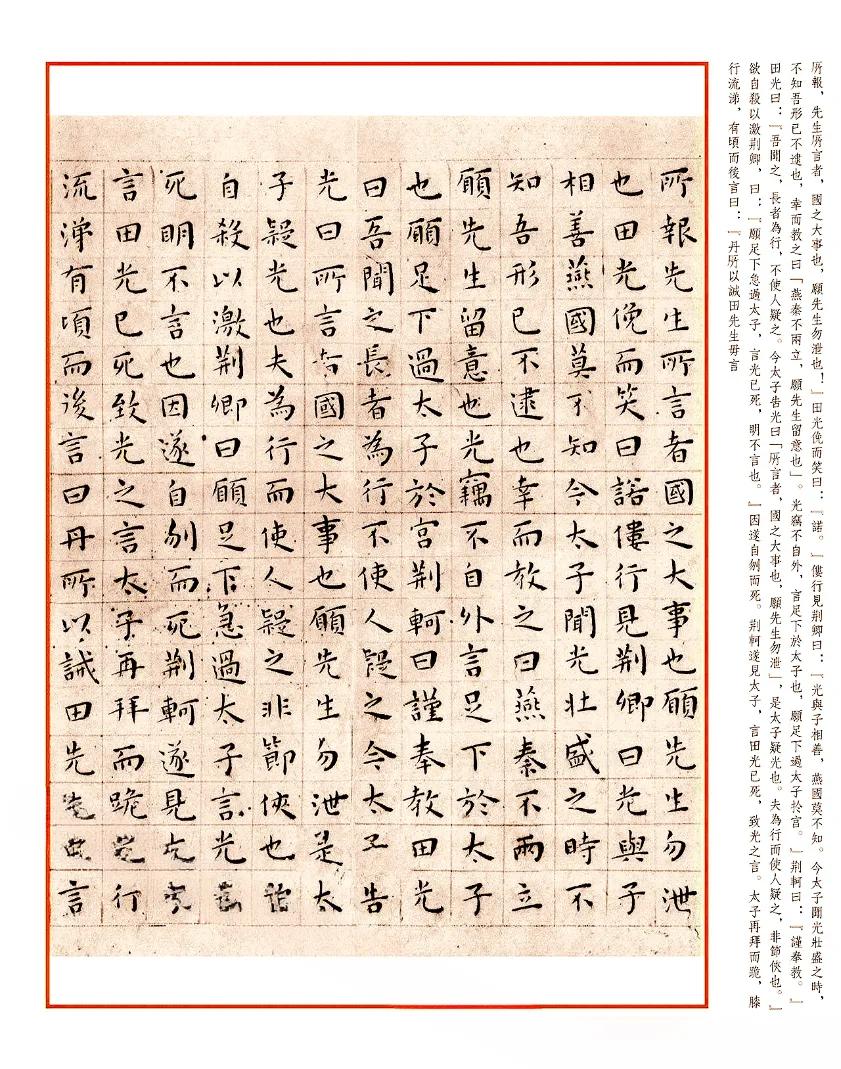 所報，先生所言者，國之大事也，願先生勿泄也！」田光俛而笑曰：『諾。』僂行見荆卿曰：『光與子相善，燕國莫不知。今太子聞光壯盛之時，
不知吾形已不逮也，幸而教之曰「燕秦不兩立，願先生留意也」。光竊不自外，言足下於太子也，願足下過太子扵宫。』荆軻曰：『謹奉教。』
田光曰：『吾聞之，長者為行，不使人疑之。今太子告光曰「所言者，國之大事也，願先生勿泄」，是太子疑光也。夫為行而使人疑之，非節俠也。』
欲自殺以激荆卿，曰：『願足下急過太子，言光已死，明不言也。』因遂自刎而死。荆軻遂見太子，言田光已死，致光之言。太子再拜而跪，膝
行流涕，有頃而後言曰：『丹所以誡田先生毋言
所報先生所言者國之大事也願先生勿泄
也田光俛而笑曰諾僂行見荆卿曰光與子
相善燕國莫不知今太子聞光壯盛之時不
知吾形已不逮也幸而教之曰燕秦不兩立
願先生留意也光竊不自外言足下於太子
也願足下過太子於宫荆軻曰謹奉教田光
曰吾聞之長者為行不使人疑之今太子告
光曰所言者國之大事也願先生勿泄是太
子疑光也夫為行而使人疑之非節俠也
自殺以激荆卿曰願足下急過太子言光
死明不言也因遂自刎而死荆軻遂見
言田光已死致光之言太子再拜而跪行
流涕有頃而後言曰丹所以誡田先言